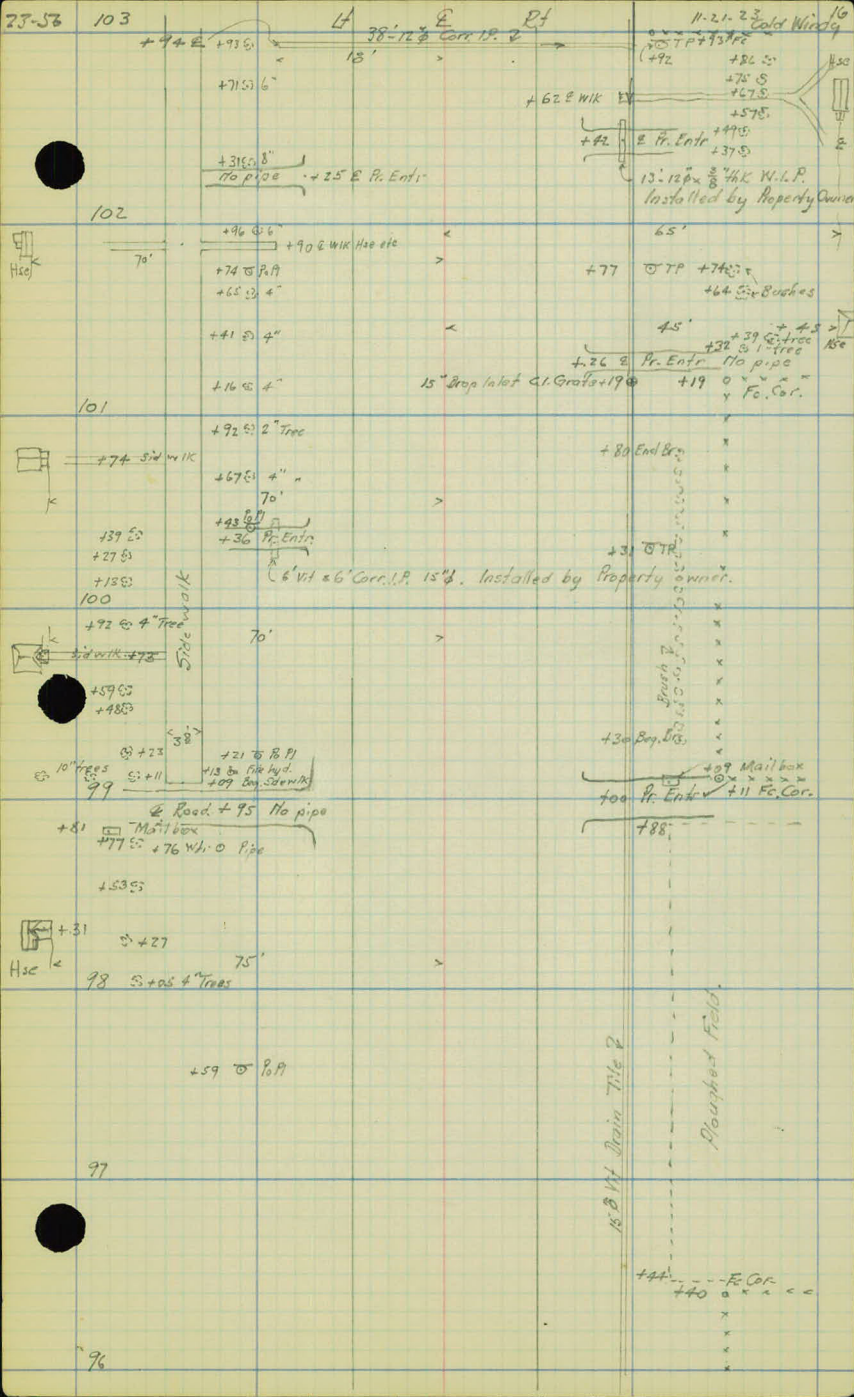 23-56 103 Lt ℄ Rt 11-21-23 Cold Windy 16
+94 ℄ +93 38'-12"ϕ Corr. I.P. TP +93 Fc
18' +92 +86 Hse
+71 6" +75
+62 ℄ Wlk +67
+57
+42 ℄ Pr. Entr +49
+37
+31 8"
No pipe +25 ℄ Pr. Entr
13'-12"ϕ x 3/8" thk W.I.P.
Installed by Property Owner
102
+96 6" 65'
+90 ℄ Wlk Hse etc
Hse 70'
+74 Po Pl +77 TP +74
+65 4" +64 Bushes
+41 4" 45' +39 tree +45
+32 1-tree Hse
+26 ℄ Pr. Entr No pipe
+16 4" 15" Drop Inlet C.I. Grate +19 +19 Fc. Cor.
101
+92 2" Tree
+74 Sid wlk +80 End Br.
+67 4" "
70'
+43 Po Pl
+39 +36 Pr. Entr.
+27 +31 TP
+13 6' Vit & 6' Corr. I.P. 15"ϕ. Installed by Property owner.
100
+92 4" Tree
Sidewalk 70'
sidwlk +73
Brush
+59
+48
38'
+23 +21 Po Pl +30 Beg. Brs.
10" trees +11 +13 Fire hyd. +09 Mailbox
+09 Beg. Sidewlk
99 +00 Pr. Entr +11 Fc. Cor.
℄ Road. +95 No pipe
+81 Mailbox +88
+77 +76 Wtr. Pipe
+53
+31
+27
Hse 75'
98 +05 4" Trees
Ploughed Field.
+59 Po Pl
15" Vit Drain Tile
97
+44 Fc Cor.
+40
96